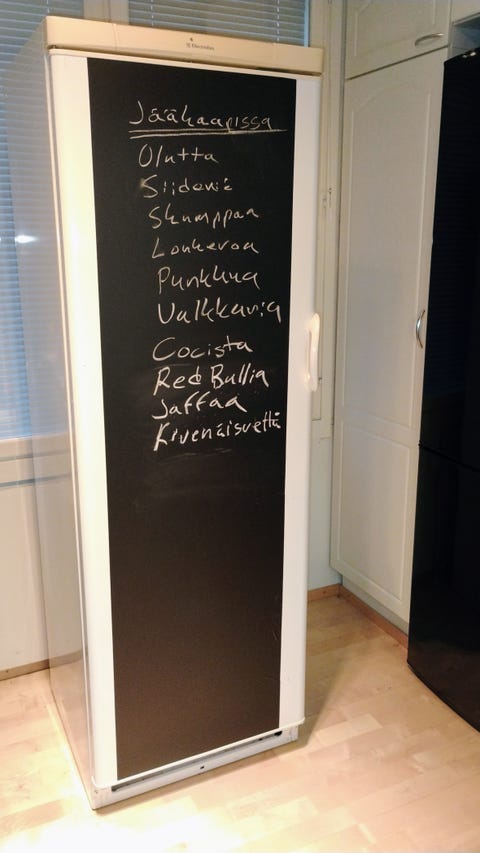 Electrolux
Jääkaapissa
Olutta
Siideriä
Skumppaa
Lonkeroa
Punkkua
Valkkaria
Cocista
Red Bullia
Jaffaa
Kivenäisvettä